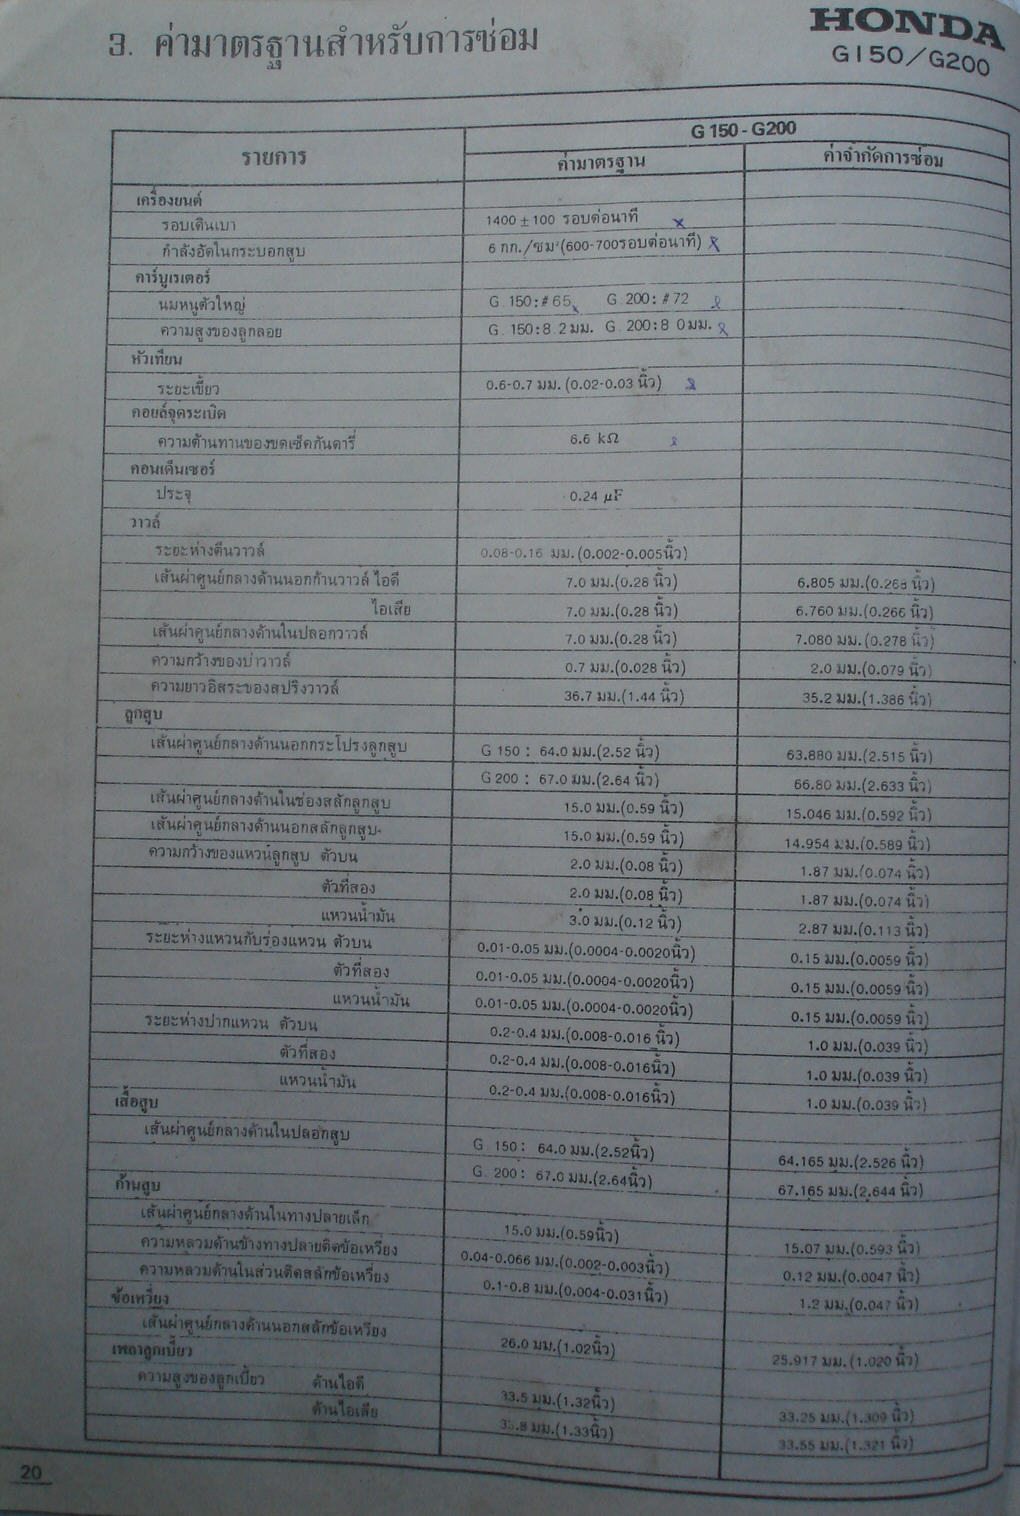 3. ค่ามาตรฐานสำหรับการซ่อม
HONDA
G150/G200
รายการ
G 150 - G200
ค่ามาตรฐาน ค่าจำกัดการซ่อม
เครื่องยนต์
รอบเดินเบา 1400 ± 100 รอบต่อนาที
กำลังอัดในกระบอกสูบ 6 กก./ซม² (600-700รอบต่อนาที)
คาร์บูเรเตอร์
นมหนูตัวใหญ่ G 150:#65 G 200:#72
ความสูงของลูกลอย G 150:8.2 มม. G 200:8 0 มม.
หัวเทียน
ระยะเขี้ยว 0.6-0.7 มม. (0.02-0.03 นิ้ว)
คอยล์จุดระเบิด
ความต้านทานของขดเซ็คกันดารี่ 6.6 kΩ
คอนเด็นเซอร์
ประจุ 0.24 µF
วาวล์
ระยะห่างตีนวาวล์ 0.08-0.16 มม.(0.002-0.005นิ้ว)
เส้นผ่าศูนย์กลางด้านนอกก้านวาวล์ ไอดี 7.0 มม.(0.28 นิ้ว) 6.805 มม.(0.268 นิ้ว)
ไอเสีย 7.0 มม.(0.28 นิ้ว) 6.760 มม.(0.266 นิ้ว)
เส้นผ่าศูนย์กลางด้านในปลอกวาวล์ 7.0 มม.(0.28 นิ้ว) 7.080 มม.(0.278 นิ้ว)
ความกว้างของบ่าวาวล์ 0.7 มม.(0.028 นิ้ว) 2.0 มม.(0.079 นิ้ว)
ความยาวอิสระของสปริงวาวล์ 36.7 มม.(1.44 นิ้ว) 35.2 มม.(1.386 นิ้ว)
ลูกสูบ
เส้นผ่าศูนย์กลางด้านนอกกระโปรงลูกสูบ G 150 : 64.0 มม.(2.52 นิ้ว) 63.880 มม.(2.515 นิ้ว)
G 200 : 67.0 มม.(2.64 นิ้ว) 66.80 มม.(2.633 นิ้ว)
เส้นผ่าศูนย์กลางด้านในช่องสลักลูกสูบ 15.0 มม.(0.59 นิ้ว) 15.046 มม.(0.592 นิ้ว)
เส้นผ่าศูนย์กลางด้านนอกสลักลูกสูบ 15.0 มม.(0.59 นิ้ว) 14.954 มม.(0.589 นิ้ว)
ความกว้างของแหวนลูกสูบ ตัวบน 2.0 มม.(0.08 นิ้ว) 1.87 มม.(0.074 นิ้ว)
ตัวที่สอง 2.0 มม.(0.08 นิ้ว) 1.87 มม.(0.074 นิ้ว)
แหวนน้ำมัน 3.0 มม.(0.12 นิ้ว) 2.87 มม.(0.113 นิ้ว)
ระยะห่างแหวนกับร่องแหวน ตัวบน 0.01-0.05 มม.(0.0004-0.0020นิ้ว) 0.15 มม.(0.0059 นิ้ว)
ตัวที่สอง 0.01-0.05 มม.(0.0004-0.0020นิ้ว) 0.15 มม.(0.0059 นิ้ว)
แหวนน้ำมัน 0.01-0.05 มม.(0.0004-0.0020นิ้ว) 0.15 มม.(0.0059 นิ้ว)
ระยะห่างปากแหวน ตัวบน 0.2-0.4 มม.(0.008-0.016 นิ้ว) 1.0 มม.(0.039 นิ้ว)
ตัวที่สอง 0.2-0.4 มม.(0.008-0.016นิ้ว) 1.0 มม.(0.039 นิ้ว)
แหวนน้ำมัน 0.2-0.4 มม.(0.008-0.016นิ้ว) 1.0 มม.(0.039 นิ้ว)
เสื้อสูบ
เส้นผ่าศูนย์กลางด้านในปลอกสูบ G 150 : 64.0 มม.(2.52นิ้ว) 64.165 มม.(2.526 นิ้ว)
G. 200 : 67.0 มม.(2.64นิ้ว) 67.165 มม.(2.644 นิ้ว)
ก้านสูบ
เส้นผ่าศูนย์กลางด้านในทางปลายเล็ก 15.0 มม.(0.59นิ้ว) 15.07 มม.(0.593 นิ้ว)
ความหลวมด้านข้างทางปลายติดข้อเหวี่ยง 0.04-0.066 มม.(0.002-0.003นิ้ว) 0.12 มม.(0.0047 นิ้ว)
ความหลวมด้านในส่วนติดสลักข้อเหวี่ยง 0.1-0.8 มม.(0.004-0.031นิ้ว) 1.2 มม.(0.047 นิ้ว)
ข้อเหวี่ยง
เส้นผ่าศูนย์กลางด้านนอกสลักข้อเหวี่ยง 26.0 มม.(1.02นิ้ว) 25.917 มม.(1.020 นิ้ว)
เพลาลูกเบี้ยว
ความสูงของลูกเบี้ยว ด้านไอดี 33.5 มม.(1.32นิ้ว) 33.25 มม.(1.309 นิ้ว)
ด้านไอเสีย มม.(1.33นิ้ว) 33.55 มม.(1.321 นิ้ว)
20